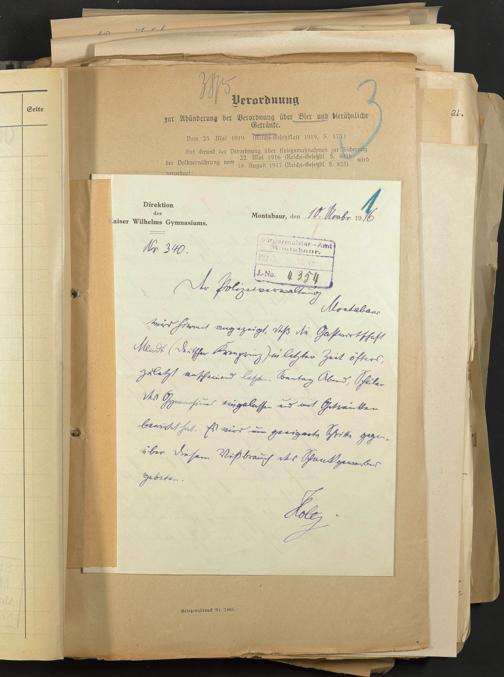 Seite
3815
Verordnung
zur Abänderung der Verordnung über Bier und bierähnliche
Getränke.
Vom 23 Mai 1919 (Reichs-Gesetzblatt 1919, S. 475)
Auf Grund der Verordnung über Kriegsmaßnahmen zur Sicherung
der Volksernährung vom 22 Mai 1916 (Reichs-Gesetzbl. S. 401) wird
18 August 1917 (Reichs-Gesetzbl. S. 823)
verordnet:
3
21.
Direktion
des
Kaiser Wilhelms Gymnasiums.
Montabaur, den 10. Novbr. 1916
1
Nr. 340.
Bürgermeister-Amt
Montabaur.
J.-No. 4354
Der Polizeiverwaltung
Montabaur
wird hiermit angezeigt, daß die Gastwirtschaft
(Deutscher Kronprinz) in letzter Zeit öfters,
zuletzt letzten Sonntag Abend, Schüler
des Gymnasiums eingelassen und mit Getränken
bewirtet hat. Es wird um geeignete Schritte gegen-
über diesem Mißbrauch des Schankgewerbes
gebeten.